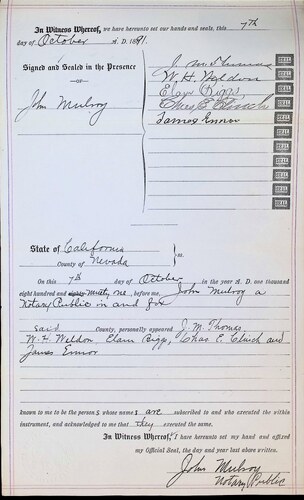 In Witness Whereof, we have hereunto set our hands and seals, this 7th
day of October A. D. 1891.
Signed and Sealed in the Presence
OF
John Mulroy
J. M. Thomas
W. H. Weldon
Elam Biggs
Chas E Clinch
James Ennor
SEAL
SEAL
SEAL
SEAL
SEAL
SEAL
SEAL
SEAL
SEAL
SEAL
State of California
County of Nevada } ss.
On this 7th day of October in the year A. D. one thousand
eight hundred and eighty ninety one, before me, John Mulroy a
Notary Public in and for
said County, personally appeared J. M. Thomas,
W. H. Weldon Elam Biggs, Chas. E. Clinch and
James Ennor
known to me to be the persons whose names are subscribed to and who executed the within
instrument, and acknowledged to me that they executed the same.
In Witness Whereof, I have hereunto set my hand and affixed
my Official Seal, the day and year last above written.
John Mulroy
Notary Public